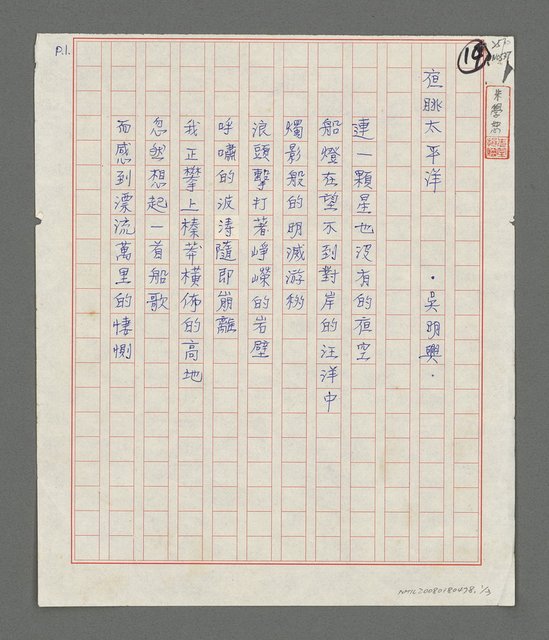 P.1.
19.
夜眺太平洋 ·吳明興·
連一顆星也沒有的夜空
船燈在望不到對岸的汪洋中
燭影般的明滅游移
浪頭擊打著崢嶸的岩壁
呼嘯的波濤隨即崩離
我正攀上榛莽橫佈的高地
忽然想起一首船歌
而感到漂流萬里的悽惻
NMTL20080180498. 1/3